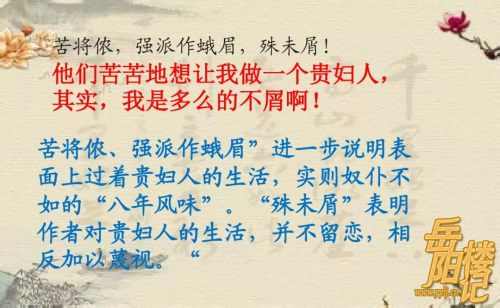 苦将侬，强派作蛾眉，殊未屑！
他们苦苦地想让我做一个贵妇人，
其实，我是多么的不屑啊！
苦将侬、强派作蛾眉”进一步说明表
面上过着贵妇人的生活，实则奴仆不
如的“八年风味”。“殊未屑”表明
作者对贵妇人的生活，并不留恋，相
反加以蔑视。“
岳阳楼记